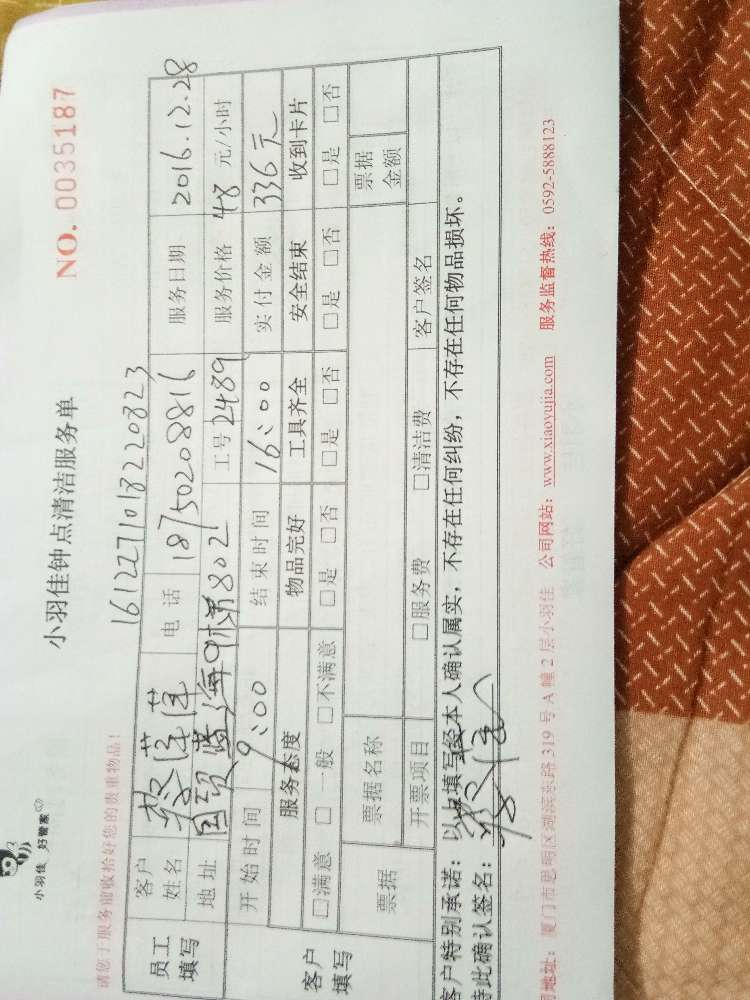 小羽佳 好管家
小羽佳钟点清洁服务单
NO. 0035187
请您于服务前收拾好您的贵重物品！
161227101822 0823
员工填写 客户姓名 电话 18750208816 服务日期 2016.12.28
地址 国贸蓝海 802 工号 2489 服务价格 48 元/小时
开始时间 9:00 结束时间 16:00 实付金额 336元
客户填写 服务态度 物品完好 工具齐全 安全结束 收到卡片
□满意 □一般 □不满意 □是 □否 □是 □否 □是 □否 □是 □否
票据 票据名称 票据金额
开票项目 □服务费 □清洁费 客户签名
客户特别承诺：以上填写经本人确认属实，不存在任何纠纷，不存在任何物品损坏。
特此确认签名：
地址：厦门市思明区湖滨东路 319 号 A 幢 2 层小羽佳 公司网站：www.xiaoyujia.com 服务监督热线：0592-5888123